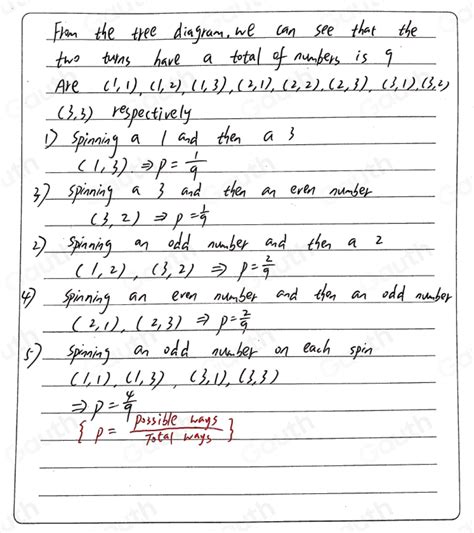 From the tree diagram, we can see that the
two turns have a total of numbers is 9
Are (1,1), (1,2), (1,3), (2,1), (2,2), (2,3), (3,1), (3,2)
(3,3) respectively
1) Spinning a 1 and then a 3
(1,3) ⇒ p = 1/9
3) spinning a 3 and then an even number
(3,2) ⇒ p = 1/9
2) Spinning an odd number and then a 2
(1,2), (3,2) ⇒ p = 2/9
4) spinning an even number and then an odd number
(2,1), (2,3) ⇒ p = 2/9
5) spinning an odd number on each spin
(1,1), (1,3), (3,1), (3,3)
⇒ p = 4/9
{ p = possible ways / Total ways }